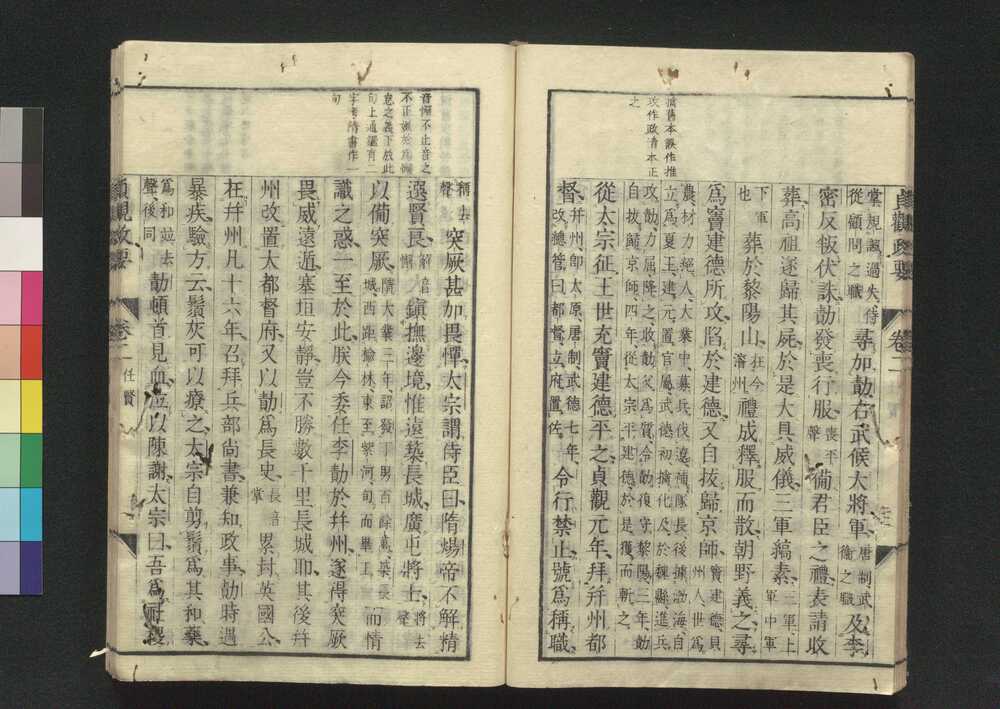 貞觀政要 卷二
掌規諫過失侍
從顧問之職 尋加勣右武候大將軍 唐制武
衛之職 及李
密反叛伏誅勣發喪行服 喪平
聲 備君臣之禮表請收
葬高祖遂歸其屍於是大具威儀三軍縞素 三軍上
軍中軍
下軍
也 葬於黎陽山 在今
濬州 禮成釋服而散朝野義之尋
爲竇建德所攻陷於建德又自拔歸京師 竇建德貝
州人世爲
農材力絕人大業中募兵伐遼補隊長後據渤海自
立爲夏王建元置官屬武德初擒化及於魏縣進兵
攻勣力屈降之收勣父爲質令勣復守黎陽三年勣
自拔歸京師四年從太宗平建德於是獲而斬之
從太宗征王世充竇建德平之貞觀元年拜幷州都
督 幷州卽太原唐制武德七年
改總管曰都督立府置佐 令行禁止號爲稱職
稱去
聲 突厥甚加畏憚太宗謂侍臣曰隋煬帝不解精
選賢良 解音
鎮撫邊境惟遠築長城廣屯將士 將去
聲
以備突厥 隋大業三年詔發丁男百餘萬築長
城西距榆林東至紫河旬而畢工 而情
識之惑一至於此朕今委任李勣於幷州遂得突厥
畏威遠遁塞垣安靜豈不勝數千里長城耶其後幷
州改置大都督府又以勣爲長史 長音
掌 累封英國公
在幷州凡十六年召拜兵部尚書兼知政事勣時遇
暴疾驗方云鬚灰可以療之太宗自剪鬚爲其和藥
爲和竝去
聲後同 勣頓首見血泣以陳謝太宗曰吾爲社稷
貞觀政要 卷二 任賢